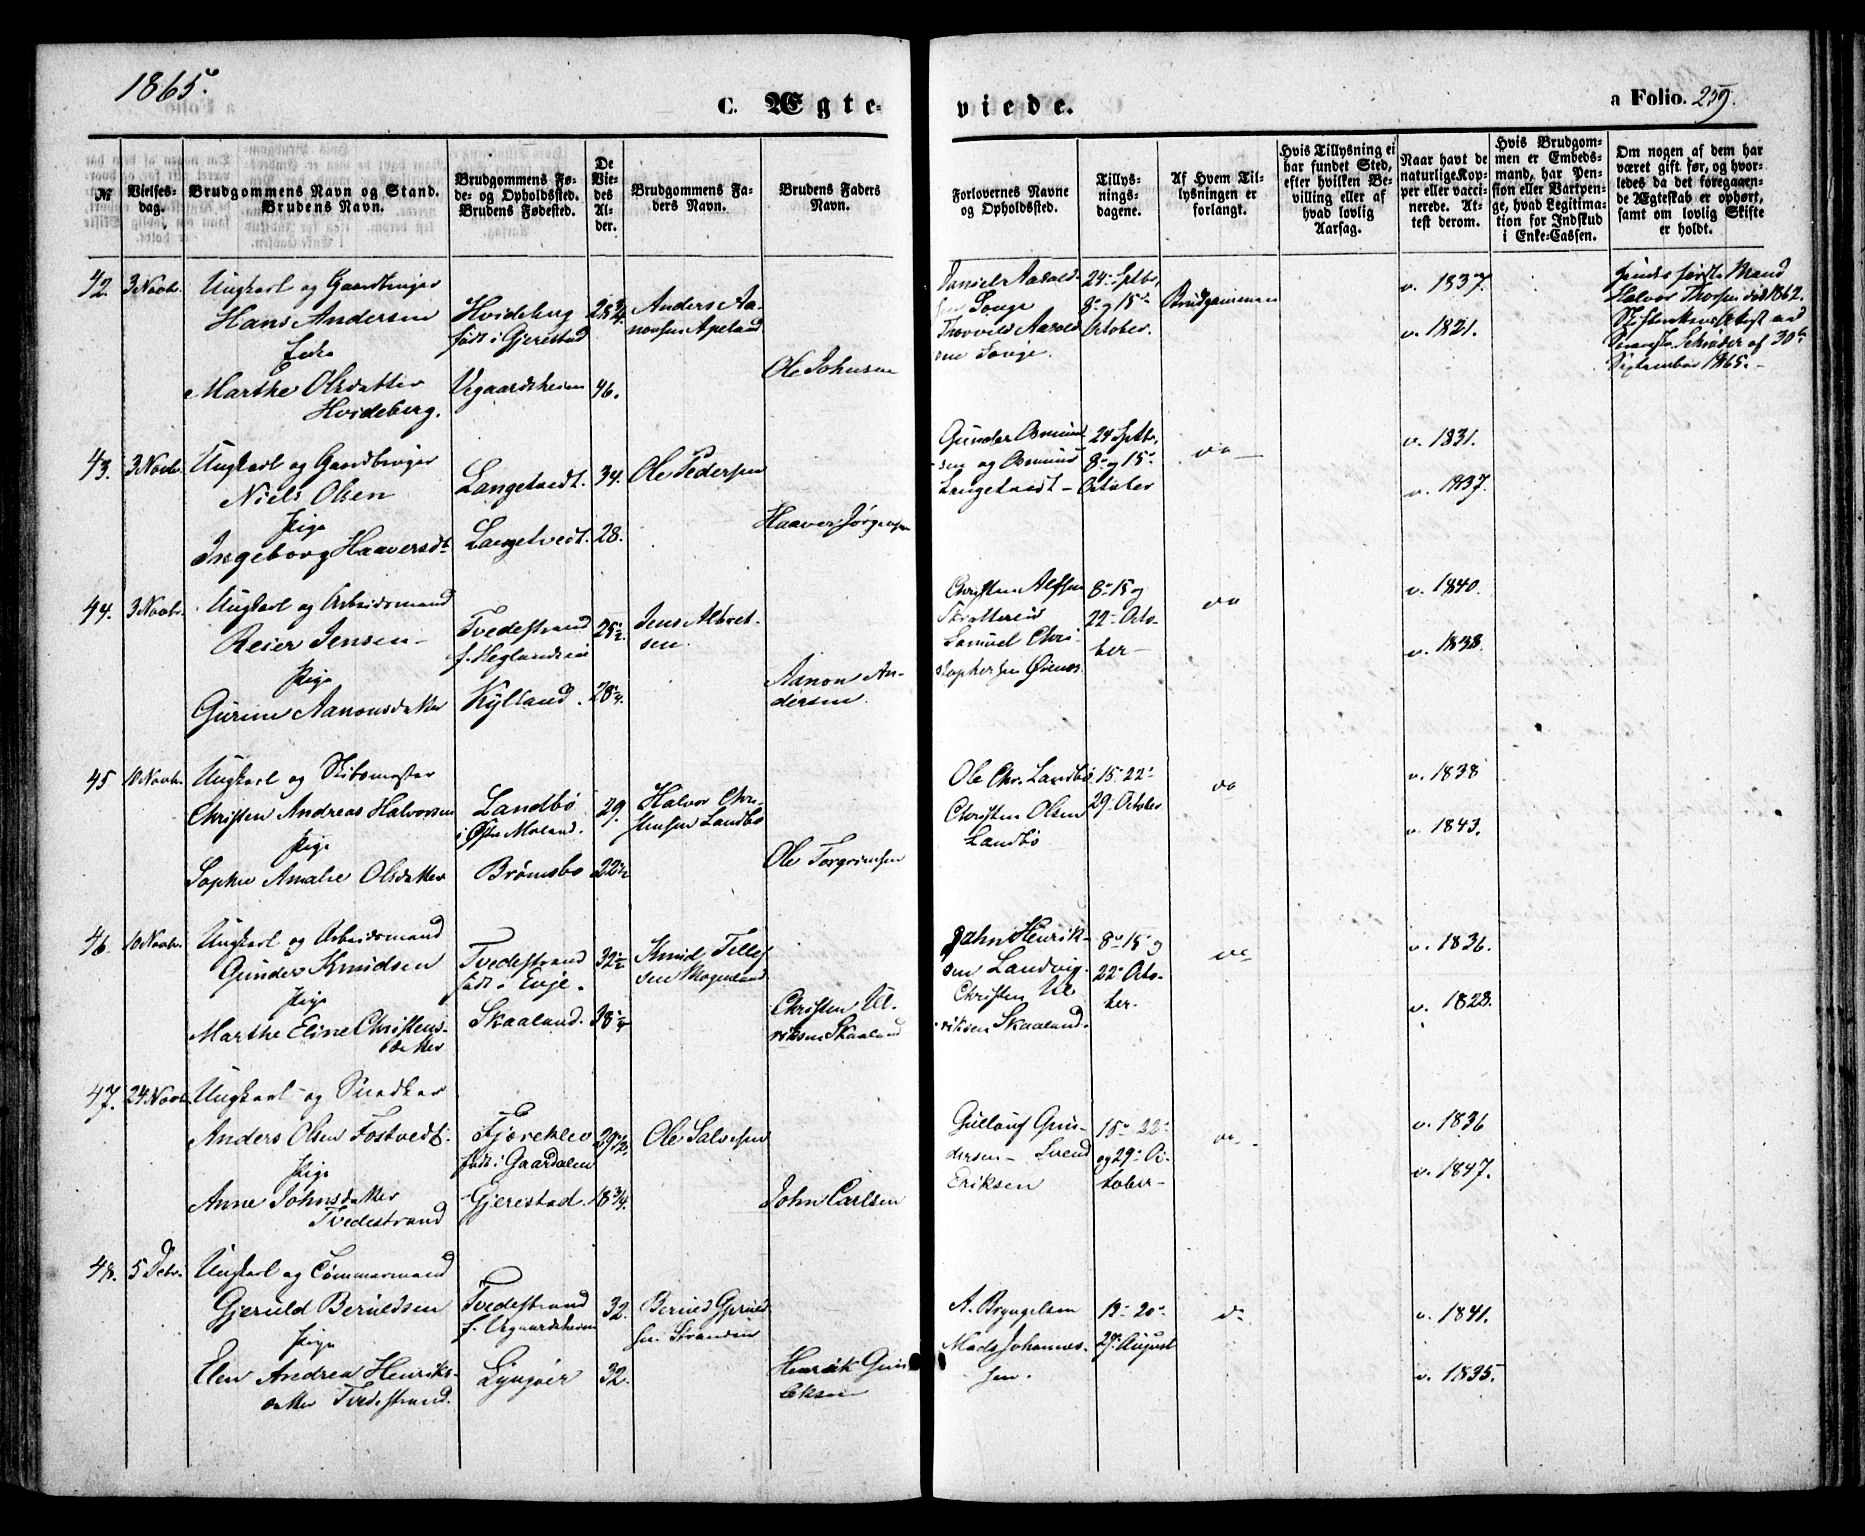 1865.
C. Ægte-
viede.
a Folio. 259.
№
Vielses-
dag.
Brudgommens Navn og Stand.
Brudens Navn.
Brudgommens Fø-
de- og Opholdssted.
Brudens Fødested.
De
Vie-
des
Al-
der.
Brudgommens Fa-
ders Navn.
Brudens Faders
Navn.
Forlovernes Navne
og Opholdssted.
Tillys-
nings-
dagene.
Af Hvem Til-
lysningen er
forlangt.
Hvis Tillysning ei
har fundet Sted,
efter hvilken Be-
villing eller af
hvad lovlig
Aarsag.
Naar havt de
naturlige Kop-
per eller vacci-
nerede. At-
test derom.
Hvis Brudgom-
men er Embeds-
mand, har Pen-
sion eller Vartpen-
ge, hvad Legitima-
tion for Indskud
i Enke-Cassen.
Om nogen af dem har
været gift før, og hvor-
ledes da det foregaaen-
de Ægteskab er ophørt,
samt om lovlig Skifte
er holdt.
42. 3 Novbr. Ungkarl og Gaardbruger
Hans Andersen
Enke
Marthe Olsdatter
Hvideberg.
Hvideberg
født i Gjerestad
Vegaardsheien
25 3/4.
46.
Anders Aa-
nonsen Apeland
Ole Johnsen
Daniel Aasold-
sen Songe
Thorvild Aasold
sen Songe.
24de Septbr,
8de og 15de
October.
Brudgommen
v. 1837.
v. 1821.
første Mand
Halvor Thorsen død 1862.
af 30te
September 1865.
43. 3 Novbr. Ungkarl og Gaardbruger
Niels Olsen
Pige
Ingeborg Haaversdt
Langetvedt.
Langetvedt.
34.
28.
Ole Pedersen
Haaver Jørgensen
Gunder Osmund
sen og Osmund
Langetvedt
24 Septbr,
8de og 15de
October
do
v. 1831.
v. 1837.
44. 3 Novbr. Ungkarl og Arbeidsmand
Reier Jensen
Pige
Gurine Aanonsdatter
Tvedestrand
f. Heglandseie
Kylland.
25 1/2.
28 1/4.
Jens Albret-
sen.
Aanon An-
dersen.
Christen Alfsen
Samuel Chri-
stophersen
8de 15 og
22de Octo-
ber
do
v. 1840.
v. 1838.
45 10 Novbr. Ungkarl og Skibsmester
Christen Andreas Halvorsen
Pige
Sophie Amalie Olsdatter
Landbø
i Østre Moland.
Brømsbo
29.
22 1/2
Halvor Chri-
stensen Landbø
Ole Torgrimsen
Ole Chr. Landbø
Christen Olsen
Landbø
15de 22de
29de October
do
v. 1838
v. 1843.
46. 10 Novbr. Ungkarl og Arbeidsmand
Gunder Knudsen
Pige
Marthe Eline Christens-
datter
Tvedestrand
født i Evje.
Skaaland.
32 1/2
38 1/4
Knud Tellef
sen Mogenland
Christen Ul-
riksen Skaaland
John Henrik-
sen Landvig.
Christen Ul-
riksen Skaaland.
8de 15 og
22de Octo-
ber.
do
v. 1836.
v. 1828.
47. 24 Novbr. Ungkarl og Snedker
Anders Olsen Fostvedt.
Pige
Anne Johnsdatter
Tvedestrand
Fjæreklev
født i Gaardalen
Gjerestad.
29 1/2.
18 3/4.
Ole Salvesen
John Carlsen
Gullouf Gun-
dersen - Svend
Eriksen
15de 22de
og 29de Oc-
tober
do
v. 1836
v. 1847.
48. 5 Decbr. Ungkarl og Tømmermand
Gjeruld Beruldsen
Pige
Elen Andrea Henriks-
datter Tvedestrand.
Tvedestrand
f. Vegaardsheien
Lyngøer
32.
32.
Beruld Gjeruld
sen Stranden
Henrik Gun
A. Bryngelsen
Mads Johannes-
sen.
13de 20de
27de August
do
v. 1841.
v. 1835.